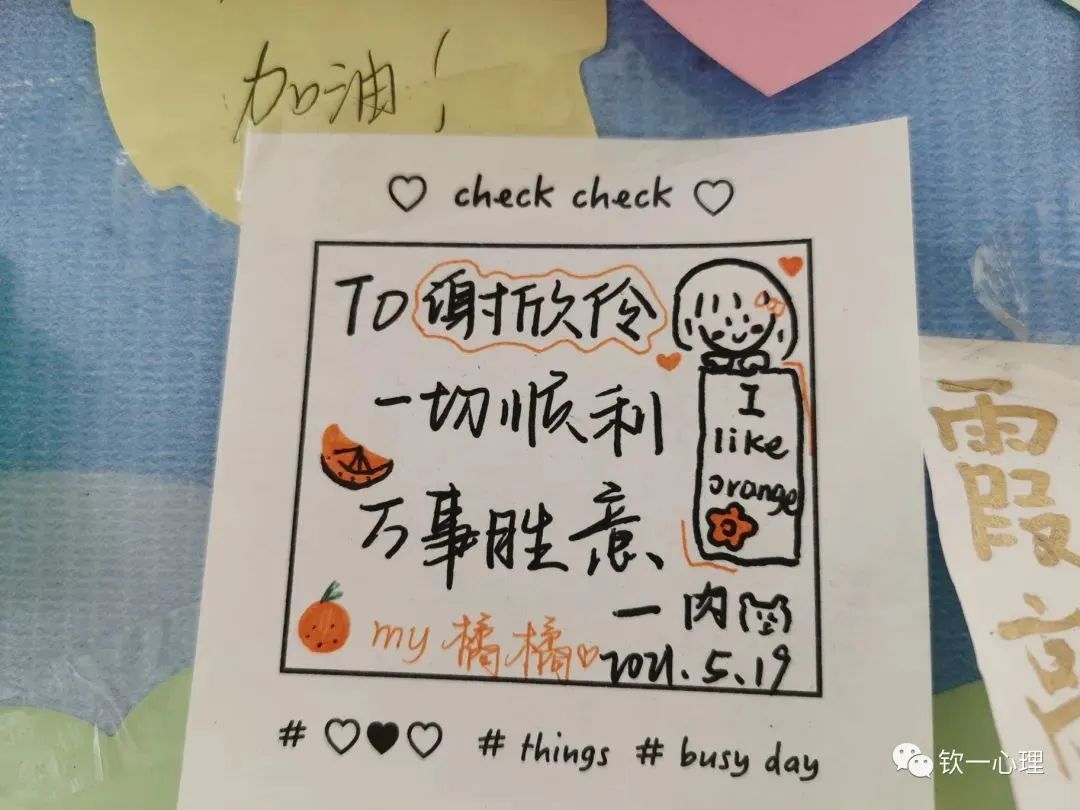 加油!
♡ check check ♡
TO 谢欣伶
一切顺利
万事胜意、
I
like
orange
一肉
my 橘橘
2021.5.19
# ♡♥♡ # things # busy day
霞
钦一心理